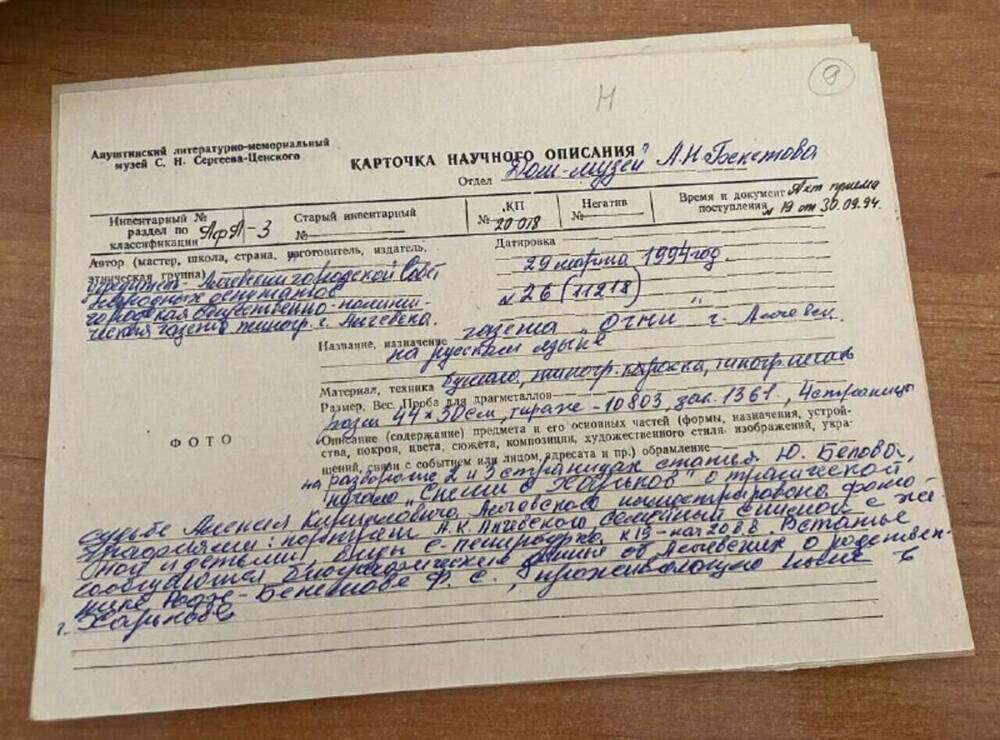 9
Н
Алуштинский литературно-мемориальный
музей С. Н. Сергеева-Ценского
КАРТОЧКА НАУЧНОГО ОПИСАНИЯ
Отдел „Дом-музей" А.Н.Бекетова
Инвентарный №
раздел по
классификации АфА-3
Старый инвентарный
№
КП
№ 20 018
Негатив
№
Время и документ Акт приема
поступления № 19 от 30.09.94.
Автор (мастер, школа, страна, изготовитель, издатель,
этническая группа)
учредитель - Алчевский городской Совет
народных депутатов
городская общественно-полити-
ческая газета типогр. г. Алчевска.
Датировка
29 марта 1994 год
№ 26 (11218)
Название, назначение газета „Огни" г. Алчевск.
на русском языке
Материал, техника Бумага, типогр. краска, типогр. печать
Размер, Вес. Проба для драгметаллов
разм 44×30 см, тираж - 10803, зак. 1361, 4 страницы
ФОТО
Описание (содержание) предмета и его основных частей (формы, назначения, устрой-
ства, покроя, цвета, сюжета, композиции, художественного стиля, изображений, укра-
щений, связи с событием или лицом, адресата и пр.) обрамление
на развороте 2 и 3 страницах статья Ю. Белова,
начало „ о трагической
судьбе Алексея Кирилловича Алчевского иллюстрирована фото-
графиями: портрет А.К. Алчевского, семейный снимок с же-
ной и детьми, виды С-Петербурга к. 19 - нач 20 в.в. В статье
сообщаются биографические данные об Алчевских о родствен-
нике - Бекетове Ф. С., проживающую ныне в
г. Харькове